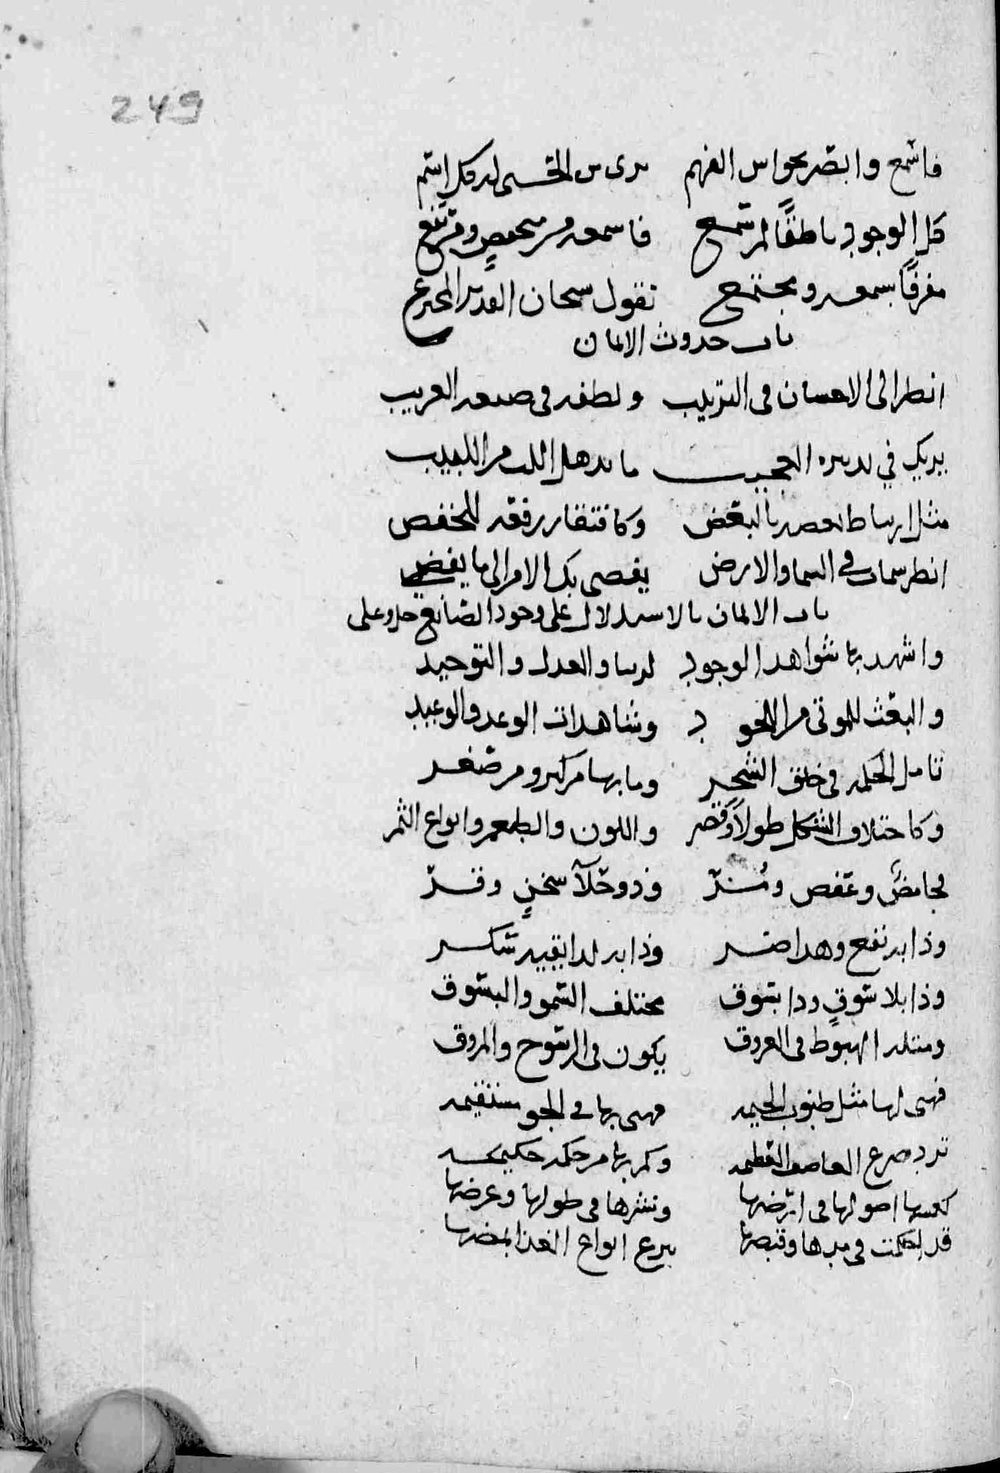 249
فاسمع وابصر بحواس الفهم
كل الوجود ناطقًا لم تسمع فاسمعه من
مفرقًا بسمعه ومجتمع تقول سبحان القدير المخترع
باب حدوث الالمان
انظر الى الاحسان فى التركيب ولطفه فى صنعه الغريب
يريك في تدبيره العجيب ما يذهل اللب من اللبيب
مثل ارتباط بعضه بالبعض وكافتقار رفعه للخفض
انظر سمات في السما والارض يفضى بك الامر الى ما يفضي
باب الالمان بالاستدلال على وجود الصانع جل وعلى
واشهد بها شواهد الوجود لربنا والعدل والتوحيد
والبعث للموتى من اللحود وشاهدات الوعد والوعيد
تامل الحكمه فى خلق الشجر وما بها من كبر ومن صغر
وكاختلاف الشكل طولاً وقصر واللون والطعم وانواع الثمر
لحامض وعفص ومُرّ وذو حلآ سخنٍ وقرّ
وذا به نفع وهذا ضر وذا به
وذا بلا شوقٍ وذا بشوق مختلف السمو والبسوق
ومثله الهبوط فى العروق يكون فى الرسوخ والمروق
فهى لها مثل طنوب الخيمه فهى بها في الجو مستقيمه
ترد صرع العاصف العظيمه وكم بها من حكمه حكيمه
اصولها فى ارضها ونشرها فى طولها وعرضها
قد احكمت فى مدها وقبضها انواع الغذا